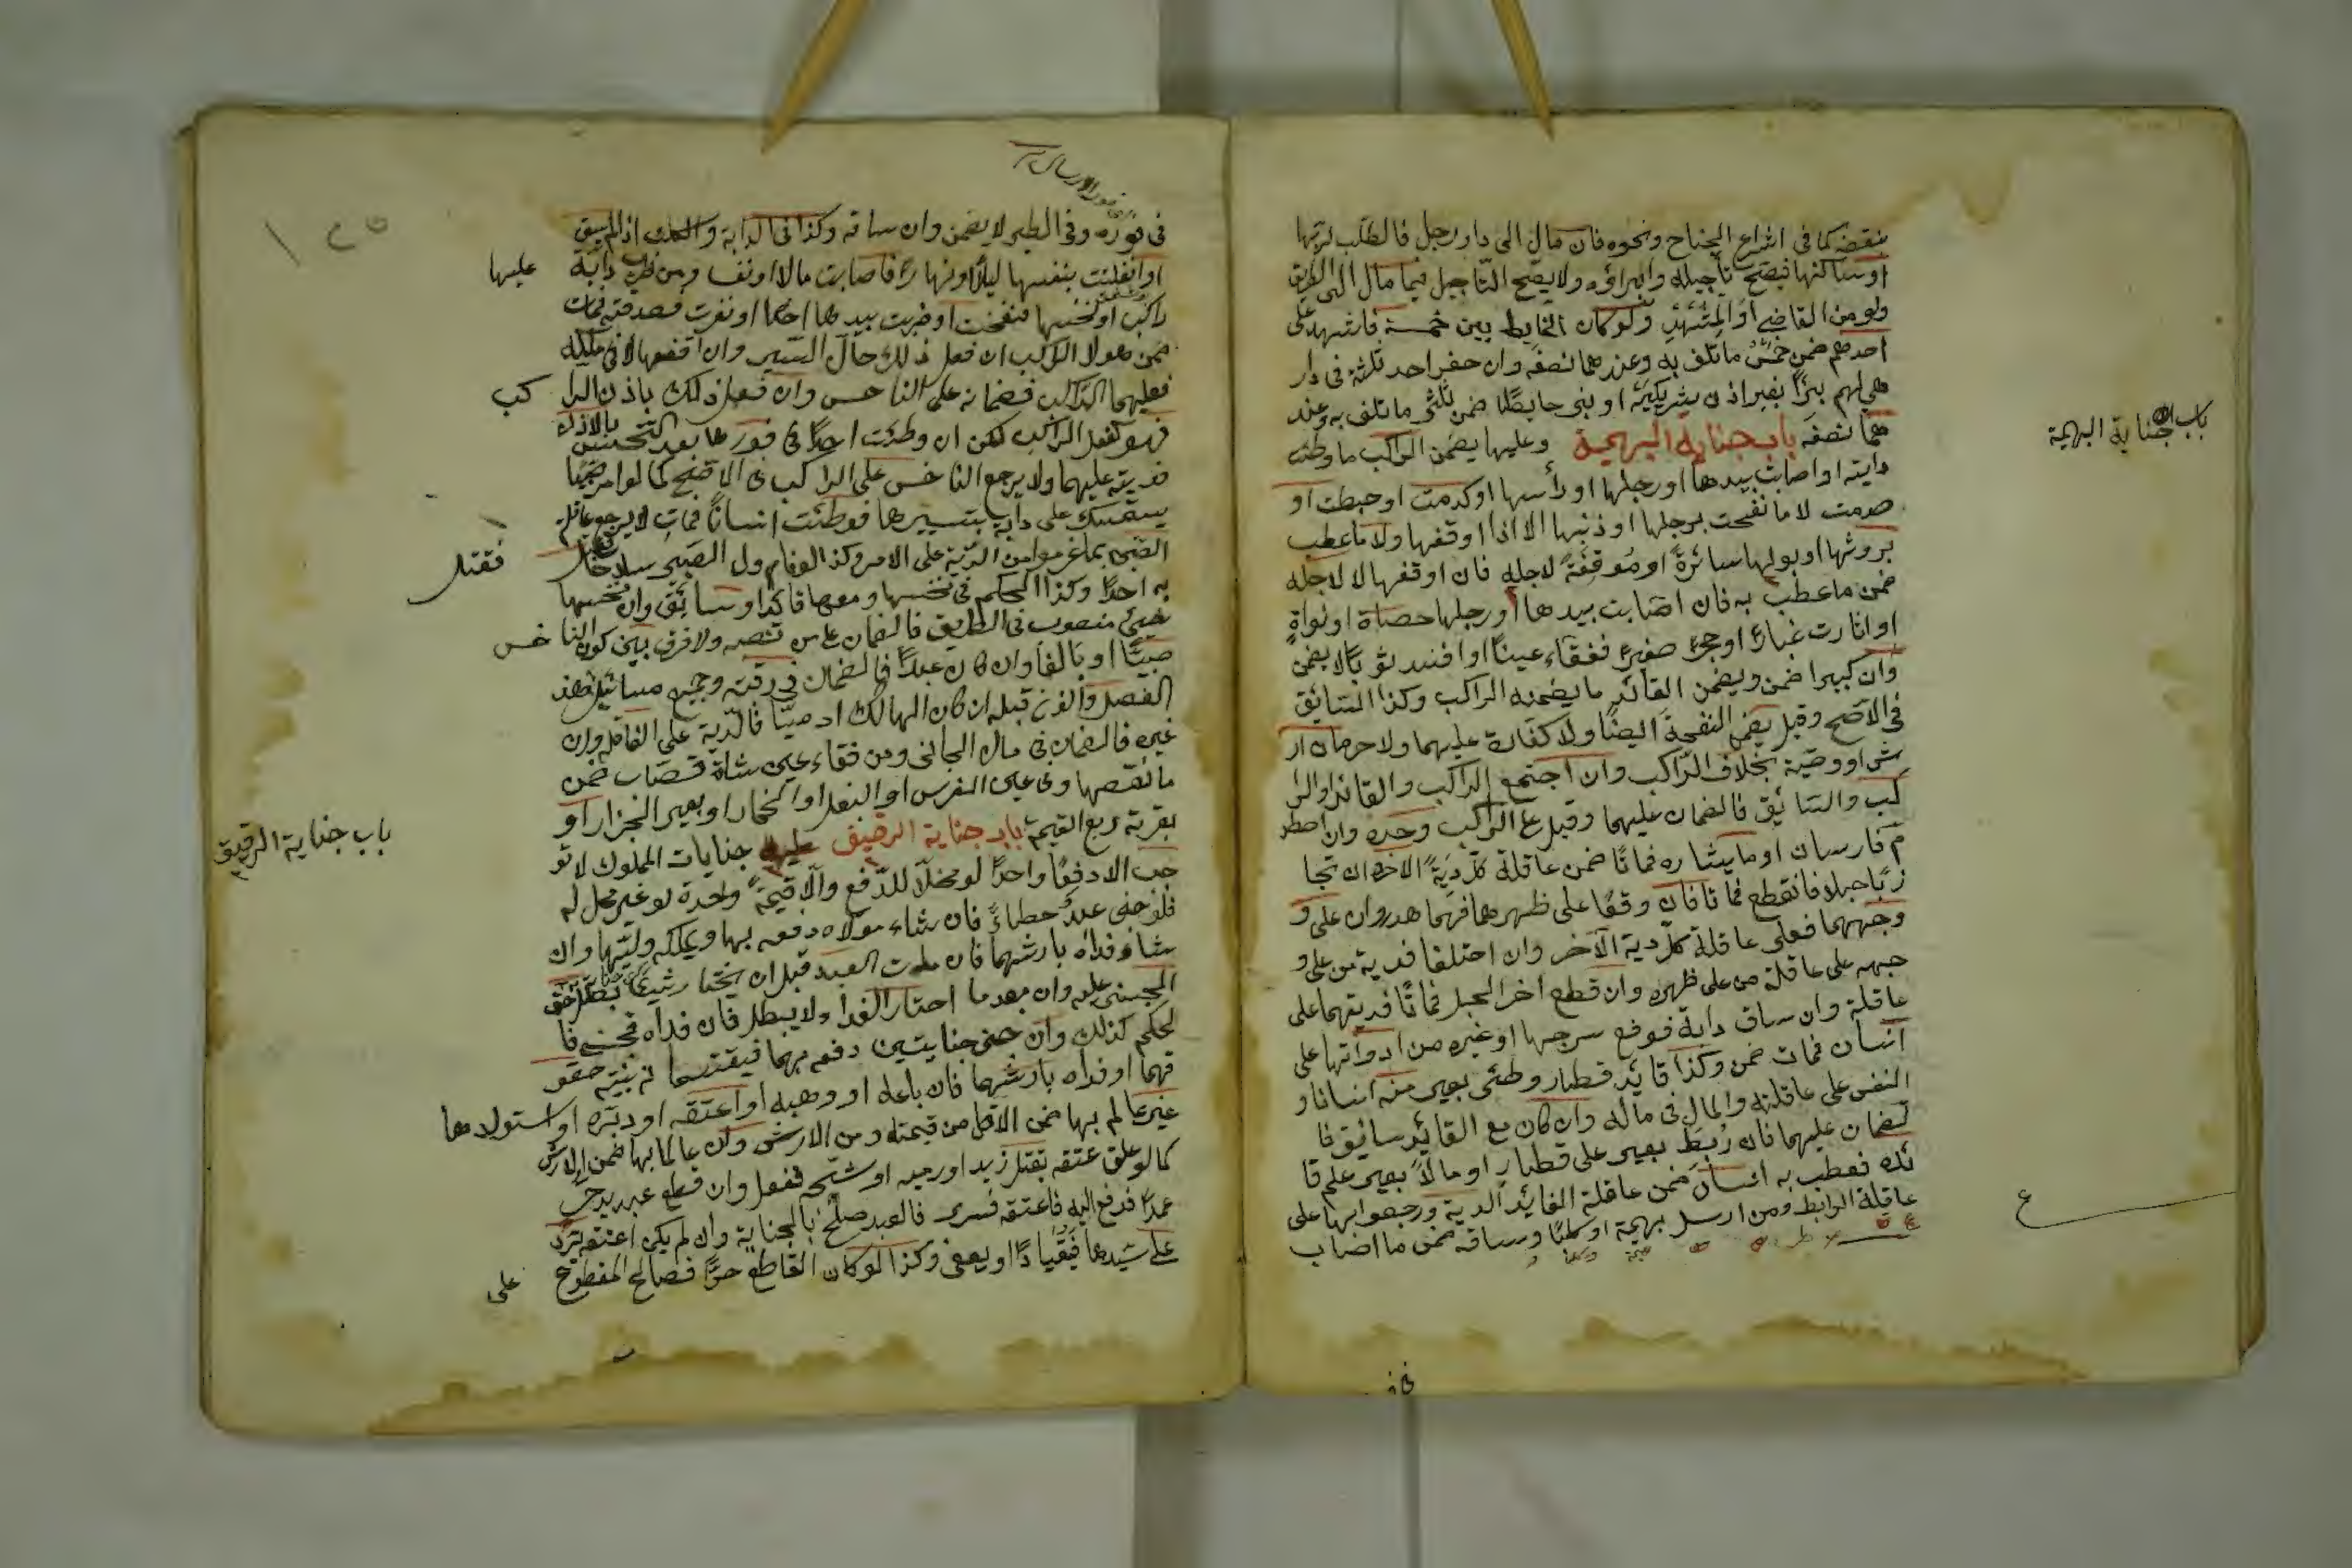 ينقضه كما في اشراع الجناح ونحوه فان مال الى دار رجل فالطلب لربها
او ساكنها فيصح تأجيله وابراؤه ولا يصح التاجيل فيما مال الى الطريق
ولو من القاضي او المشهد ولو كان الحايط بين خمسة فاشهد على
احدهم ضمن خمس ما تلف به وعندهما نصفه وان حفر احد ثلثة في دار
هي لهم بئرًا بغير اذن شريكيه او بنى حايطًا ضمن ثلثي ما تلف به وعند
هما نصفه باب جناية البهيمة وعليها يضمن الراكب ما وطئت
دابته او اصابت بيدها او رجلها او رأسها او كدمت او خبطت او
صدمت لا ما نفحت برجلها او ذنبها الا اذا اوقفها ولا ما عطب
بروثها او بولها سائرة او موقفة لاجله فان اوقفها لا لاجله
ضمن ما عطب به فان اصابت بيدها او رجلها حصاة او نواة
او اثارت غبارًا او حجرًا صغيرًا ففقاء عينًا او افسد ثوبًا لا يضمن
وان كبيرا ضمن ويضمن القائد ما يضمنه الراكب وكذا السائق
في الاصح وقيل يضمن النفحة ايضًا ولا كفارة عليهما ولا حرمان ار
ث او وصية بخلاف الراكب وان اجتمع الراكب والقائد او الرا
كب والسائق فالضمان عليهما وقيل على الراكب وحده وان اصطد
م فارسان او ماشيان فماتا ضمن عاقلة كل دية الاخر وان تجا
ذبا حبلا فانقطع فماتا فان وقعا على ظهرهما فهما هدر وان على و
وجههما فعلى عاقلة كل دية الآخر وان اختلفا فدية من على و
جهه على عاقلة من على ظهره وان قطع اخر الحبل فماتا فديتهما على
عاقلة وان ساق دابة فوقع سرجها او غيره من ادواتها على
انسان فمات ضمن وكذا قائد قطار وطئى بعير منه انسانا و
النفس على عاقلته والمال في ماله وان كان مع القائد سائق فا
لضمان عليهما فان ربط بعير على قطار او مالا بعير علم قا
ئده فعطب به انسان ضمن عاقلة القائد الدية ورجعوا بها على
عاقلة الرابط ومن ارسل بهيمة او كلبًا وساقه ضمن ما اصاب
باب جناية البهيمة
ع
في فوره وفي الطير لا يضمن وان ساقه وكذا في الدابة والكلب اذا لم يسق
او انفلتت بنفسها ليلًا او نهارًا فاصابت مالا او نفسا ومن ضرب دابة عليها
راكب او نخسها فنفحت او ضربت بيدها احدًا او نفرت فصدمته فمات
ضمن هو لا الراكب ان فعل ذلك حال السير وان اوقفها لا في ملكه
فعليهما الراكب فضمانه على الناخس وان فعل ذلك باذن الرا كب
فهو كفعل الراكب لكن ان وطئت احدًا في فورها بعد النخس بالاذن
فديته عليهما ولا يرجع الناخس على الراكب في الاصح كما لو امر صبيا
يستمسك على دابة بتسييرها فوطئت انسانًا فمات لا يرجع عاقلة
الصبي بما غرموا من الدية على الامر وكذا لو ناول الصبي سلاحًا فقتل
به احدًا وكذا الحكم في نخسها ومعها قائد او سائق وان نخسها
شيئ منصوب في الطريق فالضمان على من نصبه ولا فرق بين كون الناخس
صبيًا او بالغًا وان كان عبدًا فالضمان في رقبته وجميع مسائل هذا
الفصل والذي قبله ان كان الهالك ادميًا فالدية على العاقلة وان
غيره فالضمان في مال الجاني ومن فقاء عين شاة قصاب ضمن
ما نقصها وفي عين الفرس او البغل او الحمار او بعير الجزار او
بقرته ربع القيمة باب جناية الرقيق جنايات المملوك لا تو
جب الا دفعًا واحدًا لو محلًا للدفع والا قيمة واحدة لو غير محل له
فلو جنى عبد خطاءً فان شاء مولاه دفعه بها ويملكه وليها وان
شاء فداه بارشها فان مات العبد قبل ان يختار شيئا بطل حق
المجني عليه وان بعد ما اختار الفداء لا يبطل فان فداه فجنى فا
لحكم كذلك وان جنى جنايتين دفعه بهما فيقتسما نه بنسبة حقو
قهما او فداه بارشهما فان باعه او وهبه او اعتقه او دبره او استولدها
غير عالم بها ضمن الاقل من قيمته ومن الارش وان عالما بها ضمن الارش
كما لو علق عتقه بقتل زيد او رميه او شجه ففعل وان قطع عبد يد حر
عمدًا فدفع اليه فاعتقه فسرى فالعبد صلح بالجناية وان لم يكن اعتقه يرد
على سيدها فيقاد او يعفى وكذا لو كان القاطع حرًا فصالح المقطوع على
باب جناية الرقيق